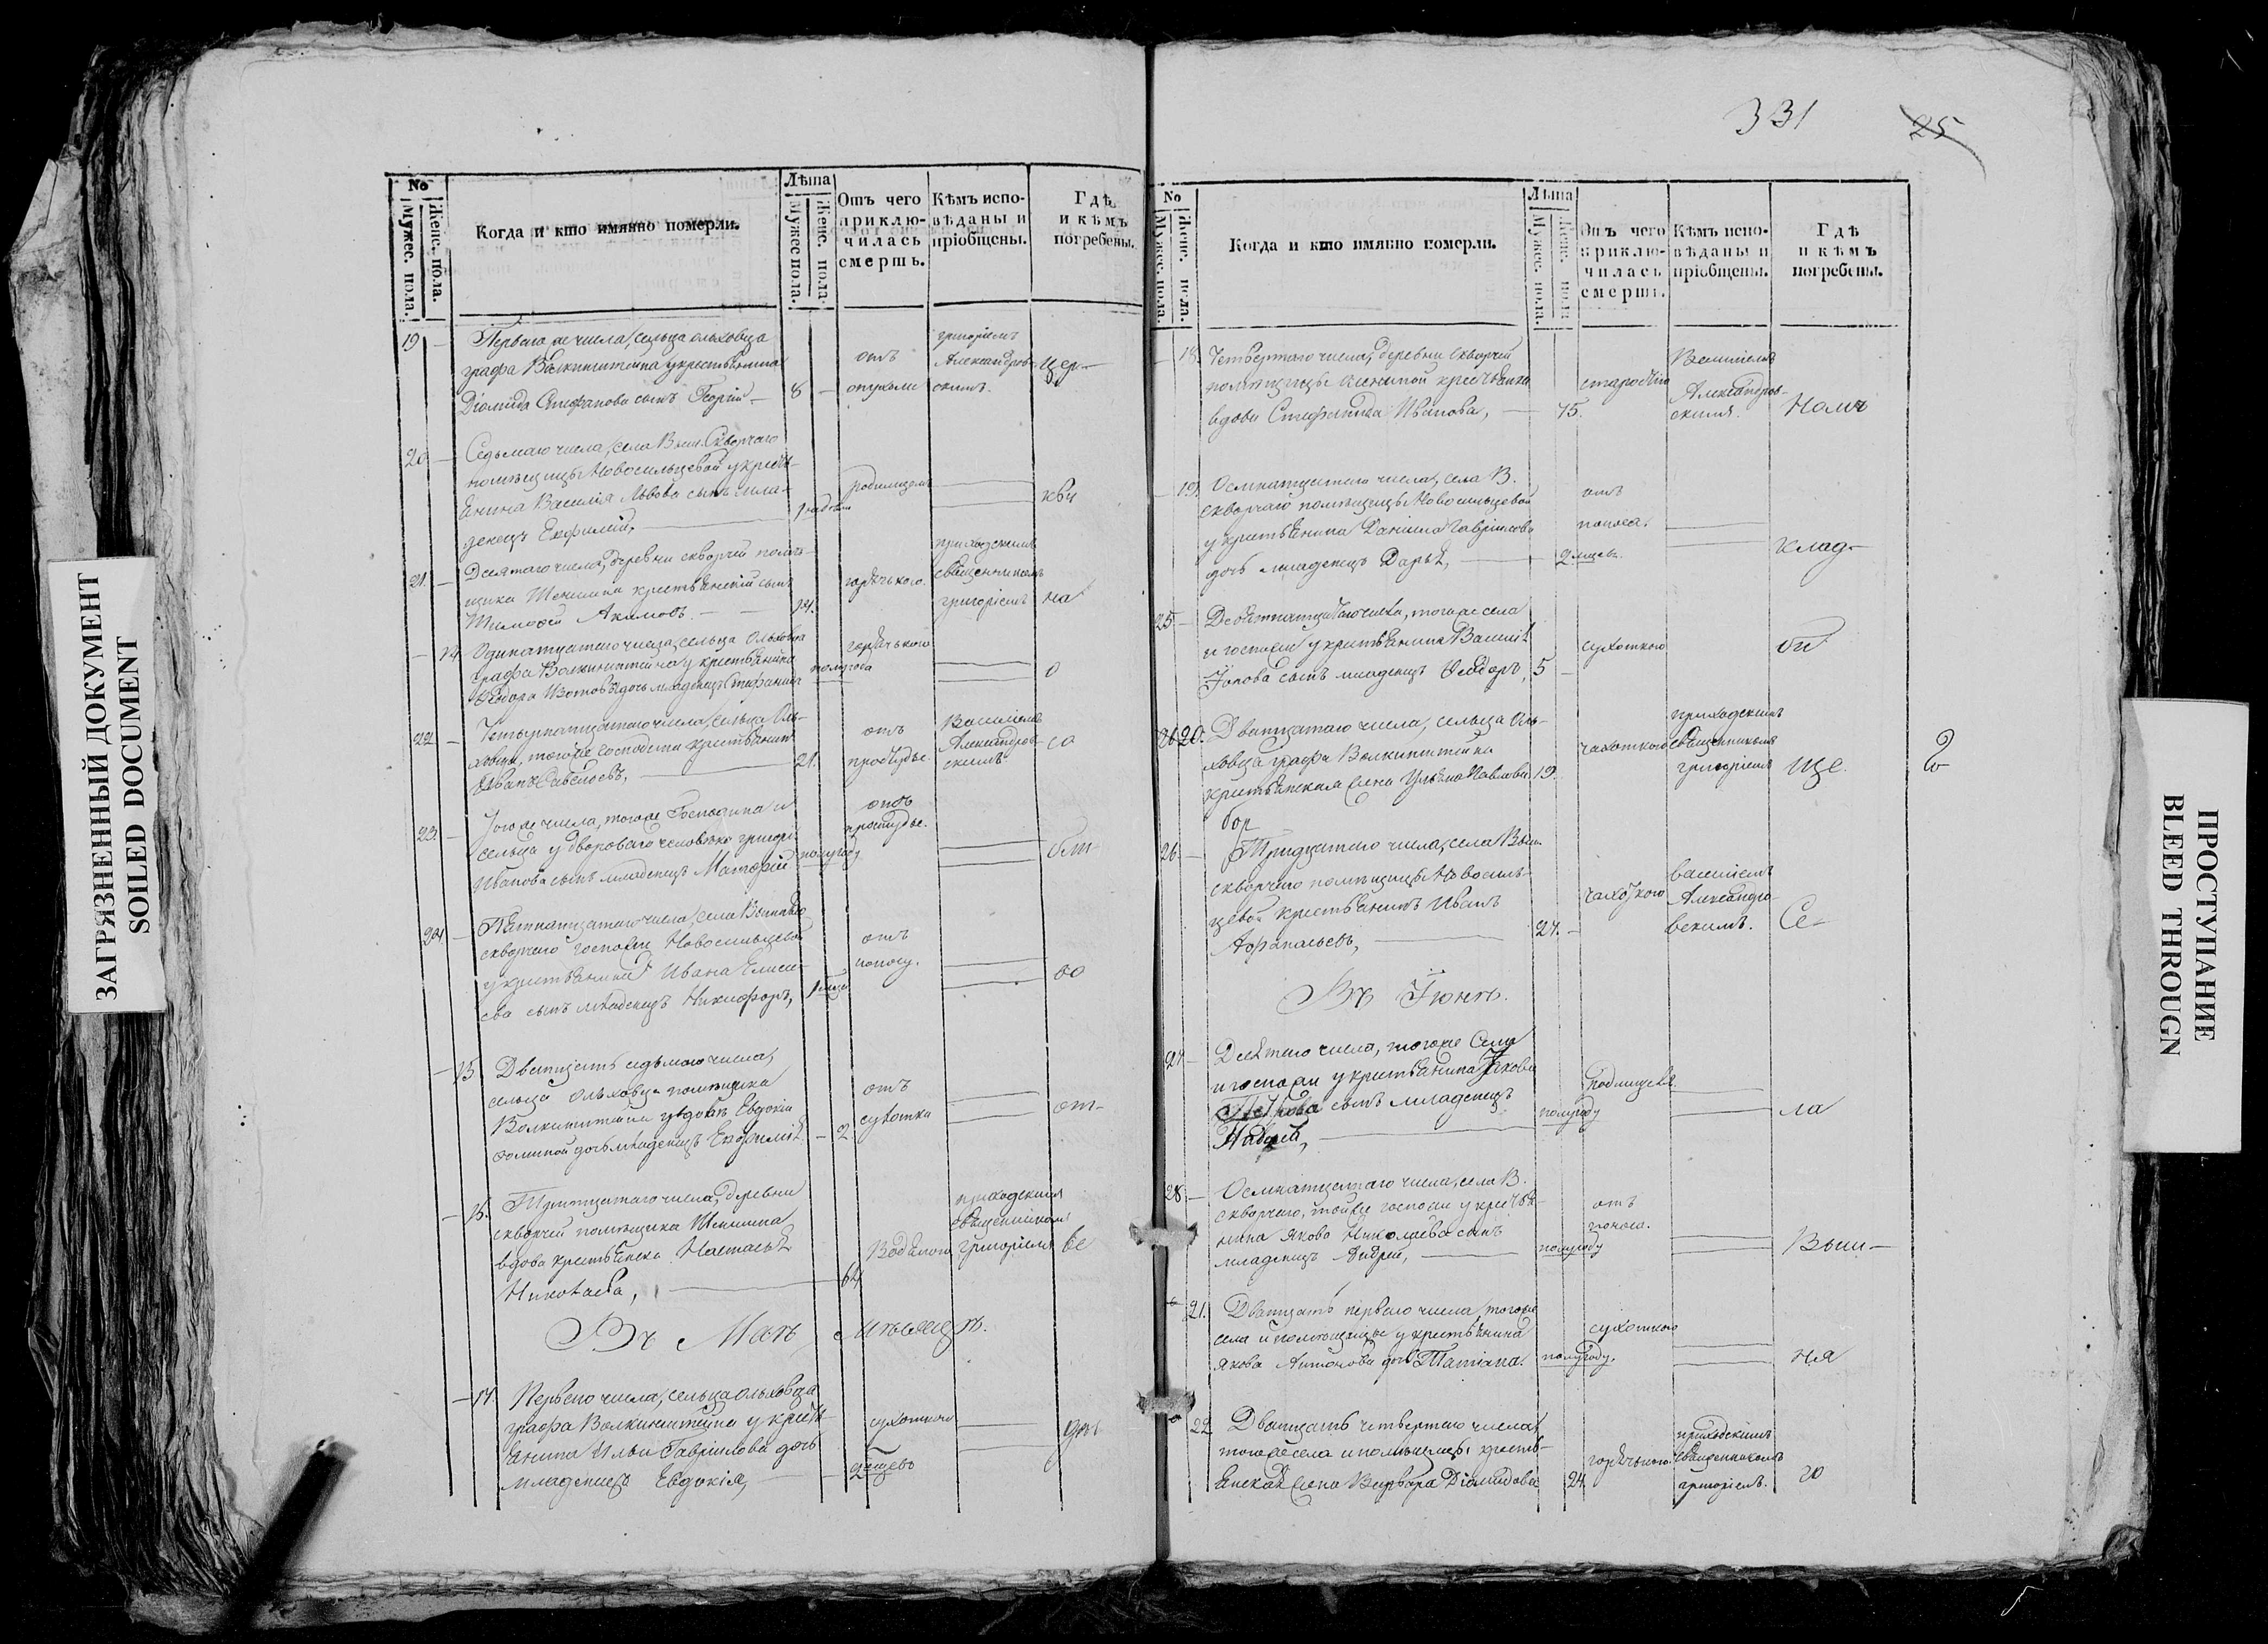 331
25
ЗАГРЯЗНЕННЫЙ ДОКУМЕНТ
SOILED DOCUMENT
№
Мужес. пола.
Женс. пола.
Когда и кто имянно померли.
Лѣта
Мужес пола.
Женс. пола.
Отъ чего приклю-
чилась смерть.
Кѣмъ испо-
вѣданы и
пріобщены.
Гдѣ
и кѣмъ
погребены.
19 — Перваго же числа, сельца ольховца
графа Валкинштейна у крестьянина
Діомида Стефанова сынъ Георгій — 8 —
отъ
опухоли
григоріемъ
Александров-
скимъ.
цер-
20 — Седьмаго числа, села Выш. Скворчаго
помѣщицы Новосильцевой у кресть-
янина Василія Львова сынъ мла-
денецъ Евфимій,
родимцемъ
кви
21. — Десятаго числа, деревни скворчей помѣ-
щика Шеншина крестьянскій сынъ
Тимофей Акимовъ — — 14.
горячькою
приходскимъ
священникомъ
григоріемъ
на
— 14 Одинатцатаго числа, сельца Ольховца
графа Валкинштейна у крестьянина
Федора Изотова дочь младенецъ Стефанида
полугода
горячькою
о
22 — Четырнатцатаго числа, сельца Оль-
ховца, тогоже господина крестьянинъ
Иванъ Савельевъ, 21.
отъ
простуды
Василіемъ
Александров-
скимъ
со
23 — Тогоже числа, тогоже Господина и
сельца у двороваго человека григорія
Иванова сынъ младенецъ Матфей
полугоду
отъ
простуды.
бли-
24. — Пятнатцатаго числа, села Вышняго
скворчаго госпожи Новосильцевой
у крестьянина Ивана Елисе-
ева сынъ младенецъ Никифоръ,
отъ
поносу.
во
— 15 Дватцать седьмаго числа,
сельца Ольховца помѣщика
Валкинштейна у вдовы Евдокіи
Фоминой дочь младенецъ Евфимія — 2
отъ
сухотки
от-
— 16. Тритцатаго числа, деревни
скворчей помѣщика Шеншина
вдова крестьянска Настасья
Николаева, 64
Водяною
приходскимъ
священникомъ
григоріемъ
ве
Въ Маѣ мѣсяцѣ.
— 17. Перваго числа, сельца Ольховца
графа Валкинштейна у кресть-
янина Ильи Гавріилова дочь
младенецъ Евдокія, — 2 месцовъ
сухоткою
ден
№
Мужес. пола.
Женс. пола.
Когда и кто имянно померли.
Лѣта
Мужес. пола.
Женс. пола
Отъ чего
приклю-
чилась
смерть.
Кѣмъ испо-
вѣданы и
пріобщены.
Гдѣ
и кѣмъ
погребены.
— 18. Четвертаго числа, деревни скворчей
помѣщицы крестьянка
вдова Стефанида Иванова, — 75.
старостію
Василіемъ
Александров-
скимъ.
номъ
— 19. Осмнатцатаго числа, села В.
скворчаго помѣщицы Новосильцевой
у крестьянина Даніила Гавріилова
дочь младенецъ Дарья, 2 мцев.
отъ
поноса.
клад-
25 — Девятнатцатаго числа, тогоже села
и госпожи у крестьянина Василія
Іонова сынъ младенецъ Феодоръ, 5 —
сухоткою
би
20. Дватцатаго числа, сельца Оль-
ховца графа Валкинштейна
крестьянская жена Ульяна Павлова 19.
чахоткою
приходскимъ
священникомъ
григоріемъ
ще.
26. — Тридцатаго числа, села Выш.
скворчаго помѣщицы Новосиль-
цевой крестьянинъ Иванъ
Афанасьевъ, 27. —
чахоткою
василіемъ
Александро-
вскимъ.
Се-
Въ Іюнѣ.
27 — Десятаго числа, тогоже Села
и госпожи у крестьянина Іякова
сынъ младенецъ
Андрей,
полугоду
родимцемъ
ла
28. — Осмнатцатаго числа, села В.
скворчаго, тойже госпожи у кресть-
янина Якова Николаева сынъ
младенецъ Андрей,
полугоду
отъ
поноса.
Выш-
21. Дватцать перваго числа, тогоже
села и помѣщицы у крестьянина
Якова Антонова дочь Татіана.
полугоду.
сухоткою
ня
22 Дватцать четвертаго числа,
тогоже села и помѣщицы, кресть-
янская жена Варвара Діомидова 24
горячькою
приходскимъ
священникомъ
григоріемъ.
го
ПРОСТУПАНИЕ
BLEED THROUGN